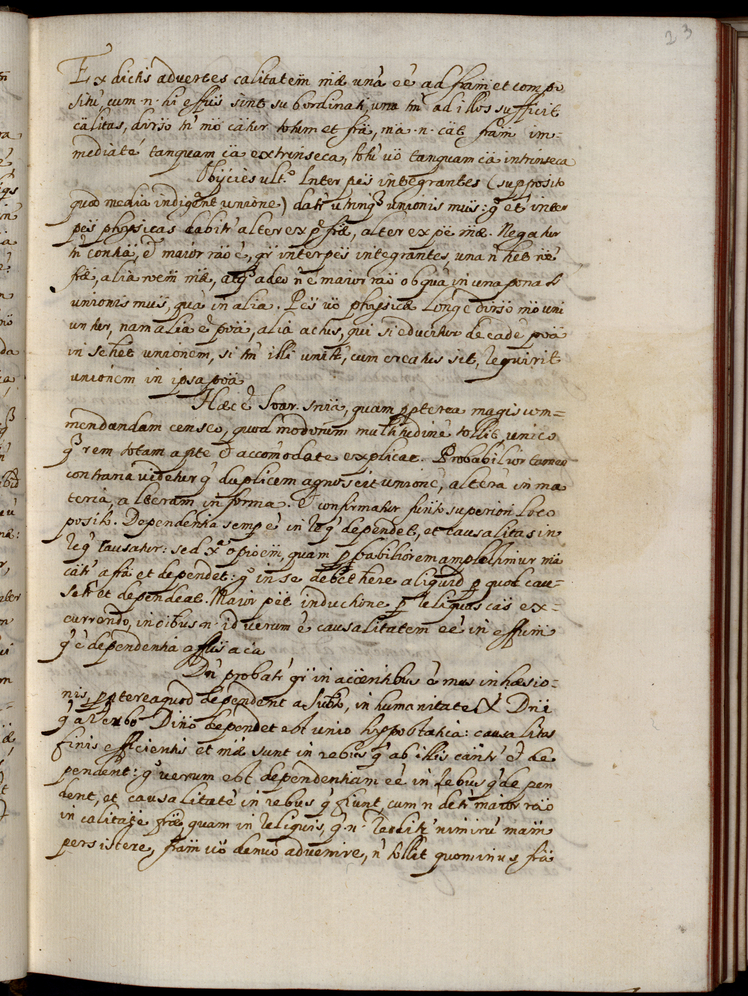 23
Ex dictis advertes calitatem mæ unā eē ad framī et compo
situ, cum n. hi effūs sint subordinati, una tn ad illos sufficit
calitas, divrso tn mō catur totum et fra, nā n. cāt fram im=
mediatē tanquam cā extrinseca, totū uō tanquam cā intrinseca
Obijcies ult.º Inter pēs integrantes (supposito
quod media indigēnt unione) datr utrinq unionis mus: gº et inter
pēs physicas dabitr alter ex pē fræ, alter ex pē mæ. Negatur
tn conña, ē maior rāo ē, qr inter pēs integrantes, una n het rōē
fræ, alia rōem mæ, atq adeo n ē maior rāo ob quā in una ponatr
unionis mus, quā in alia. Pēs uō physicæ longē divrso mō uni
untur, nam alia ē poā, alia actus, qui si educitur de eadē poā
in se het unionem, si tn illi unitr, cum creatus sit, requirit
unionem in ipsa poā
Hæc ē Soar. snīa, quam ppterea magis com=
mendandam censeo, quod modorum multitudinē tollit, unico
q rem totam aptē & accomodatē explicat. Probabilior tamen
contraria videtur q duplicem agnoscit unionē, altera in ma
teria, alteram in forma. & confirmatur funto superiori loco
posito. Dependentia semp ē in re q dependet, et causalitas in
re q causatur: sed xª opioem, quam pbabiliorem amplectimur mā
cātr a fra et dependet: gº in se debet hēre aliquid p quod cau=
setr et dependeat. Maior pēt inductione p reliquas cās ex=
currendo, in cibus n. id verum ē causalitatem eē in effum
q ē dependentia affūs a cā
Dn probatr qr in accentibus ē mus inhæsio=
nis, pptereaquod dependent a subto, in humanitate X Dni
q a Verbo Dino dependet est unio hypostatica: causalitas
finis efficientis et mæ sunt in rebus q ab illis cantr ē de
pendent: gº verum est dependentiam eē in rebus q depen
dent, et causalitatē in rebus q fiunt, cum n detr maior rāo
in calitate fræ quam in reliquis, q n. redditr nimirū mam
persistere, fram uō denuo advenire, n tollit quominus fra